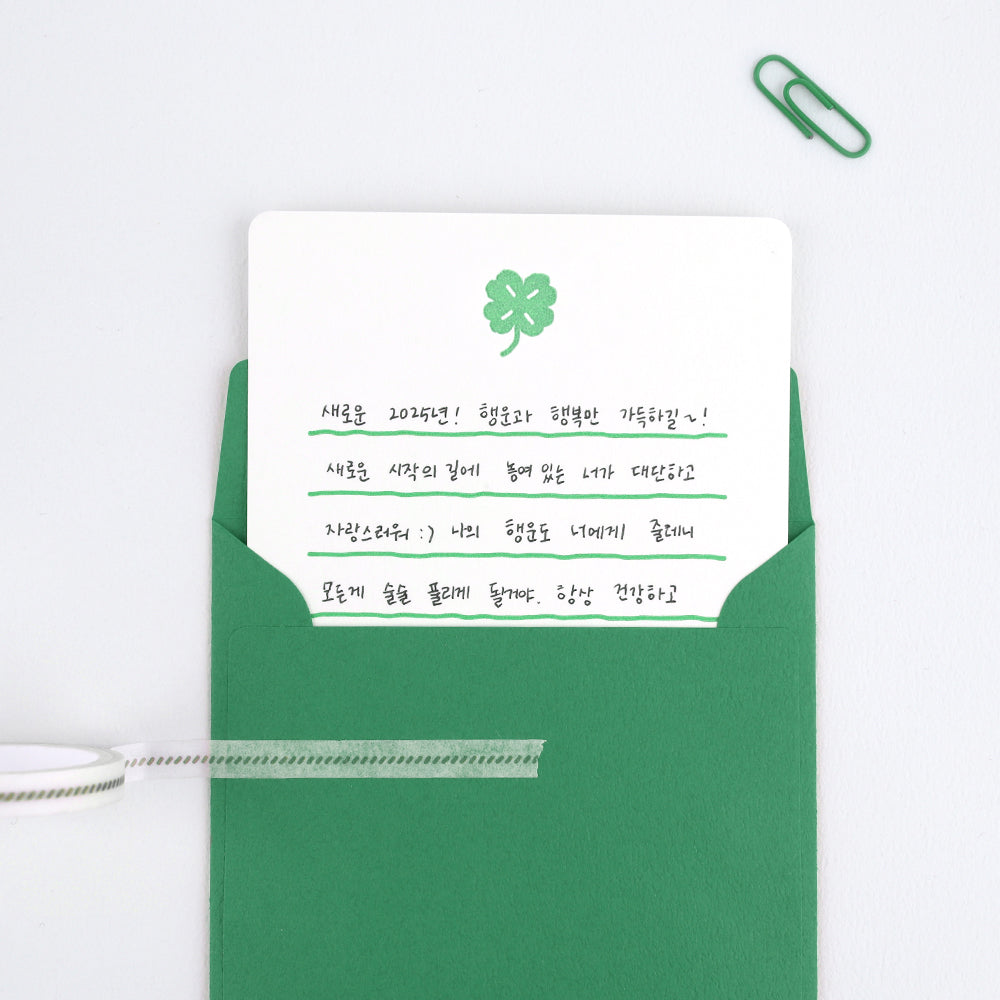 새로운 2025년! 행운과 행복만 가득하길~!
새로운 시작의 길에 놓여 있는 너가 대단하고
자랑스러워 :) 나의 행운도 너에게 줄테니
모든게 술술 풀리게 될거야. 항상 건강하고